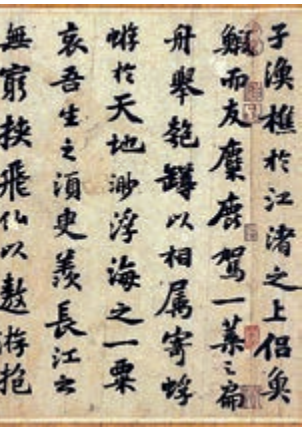 子漁樵於江渚之上侣魚
鰕而友麋鹿駕一葉之扁
舟舉匏罇以相属寄蜉
蝣於天地渺浮海之一粟
哀吾生之須臾羨長江之
無窮挾飛仙以遨游抱